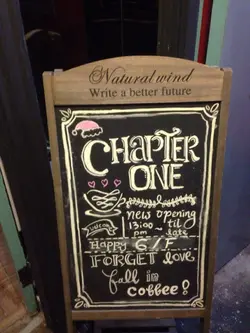 Natural wind
Write a better future
CHAPTER
ONE
new opening
welcome
13:00 til
pm late
Happy 6/F
FORGET love
fall in
cobbee!